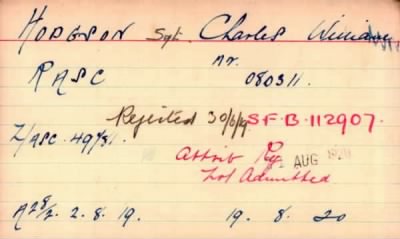 HODGSON Sgt. Charles William
RASC Nr. 080311.
Rejected 30/6/19 S.F.B. 112907.
Z/ASC. 49731.
Attrib Ry
2 AUG 1920
Not Admitted
A28/2. 2. 8. 19. 19. 8. 20